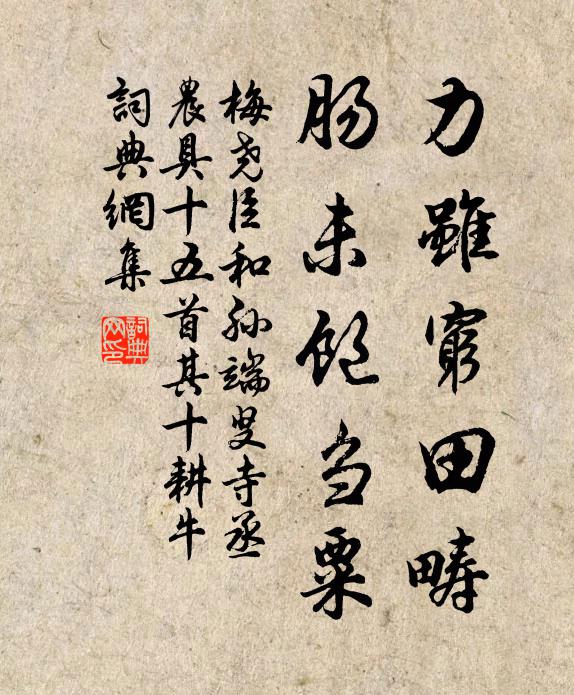 力雖窮田疇
肠未飽刍粟
梅尧臣和孙端叟寺丞
農具十五首其十耕牛
詞典網集
詞典网印